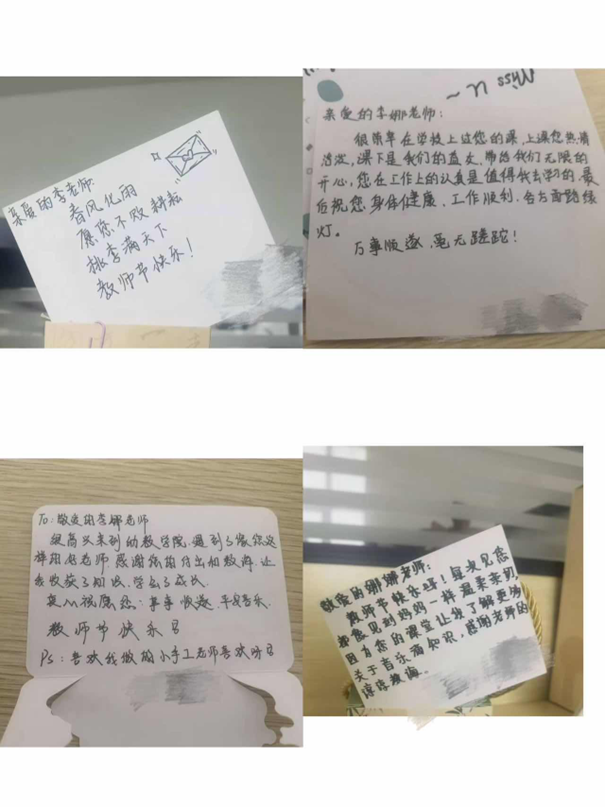 亲爱的李老师:
春风化雨
愿您不败耕耘
桃李满天下
教师节快乐!
Miss U ~
亲爱的李娜老师:
很荣幸在学校上过您的课,上课您热情
洁波,课下是我们的益友,带给我们无限的
开心,您在工作上的认真是值得我去学习的最
后祝您身体健康,工作顺利,各方面路绿
灯。
万事顺遂,毫无蹉跎!
To:敬爱的李娜老师
很高兴来到幼教学院,遇到了像您这
样的老师 感谢您的付出和教诲,让
我收获了知识,学会了成长.
衷心祝愿您:事事顺遂,平安喜乐.
教师节快乐
Ps:喜欢我做的小手工老师喜欢呀
敬爱的娜娜老师:
教师节快乐呀!每次见您
都像见到妈妈一样温柔亲切,
因为您的课堂让我了解更多
关于音乐的知识,感谢老师的
谆谆教诲。